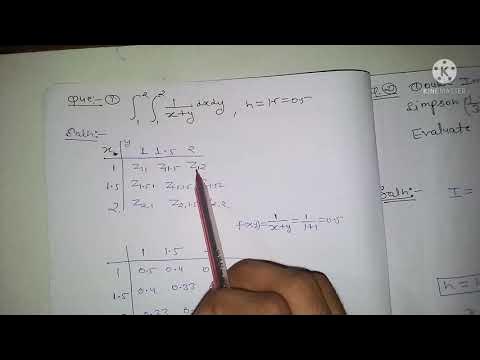 Que:- ① ∫₁² ∫₁² 1/(x+y) dxdy, h=k=0.5
Soln:-
x y 1 1.5 2
1 Z1,1 Z1,1.5 Z1,2
1.5 Z1.5,1 Z1.5,1.5 Z1.5,2
2 Z2,1 Z2,1.5 Z2,2
f(x,y)=1/(x+y)=1/(1+1)=0.5
1 1.5
1 0.5 0.4
1.5 0.4 0.33
0.33
Simpson
Evaluate
Soln:- I =
h =
KINEMASTER